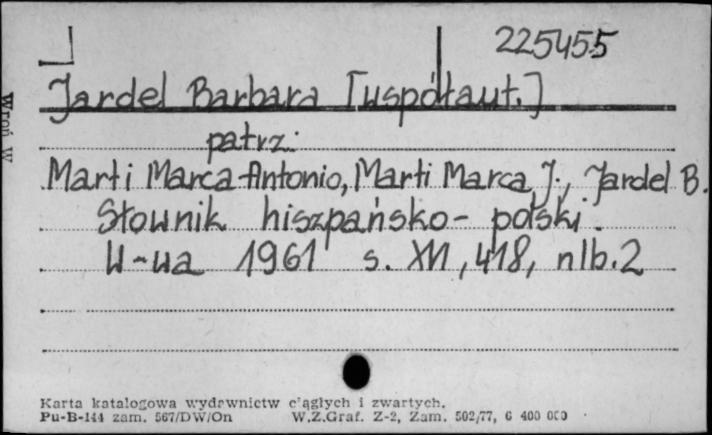 225455
Jardel Barbara [współaut.]
patrz:
Marti Marca Antonio, Marti Marca J., Jardel B.
Słownik hiszpańsko-polski.
W-wa 1961 s. XVI, 418, nlb. 2
Karta katalogowa wydawnictw ciągłych i zwartych.
Pu-B-144 zam. 567/DW/On W.Z.Graf. Z-2, Zam. 502/77, 6 400 000